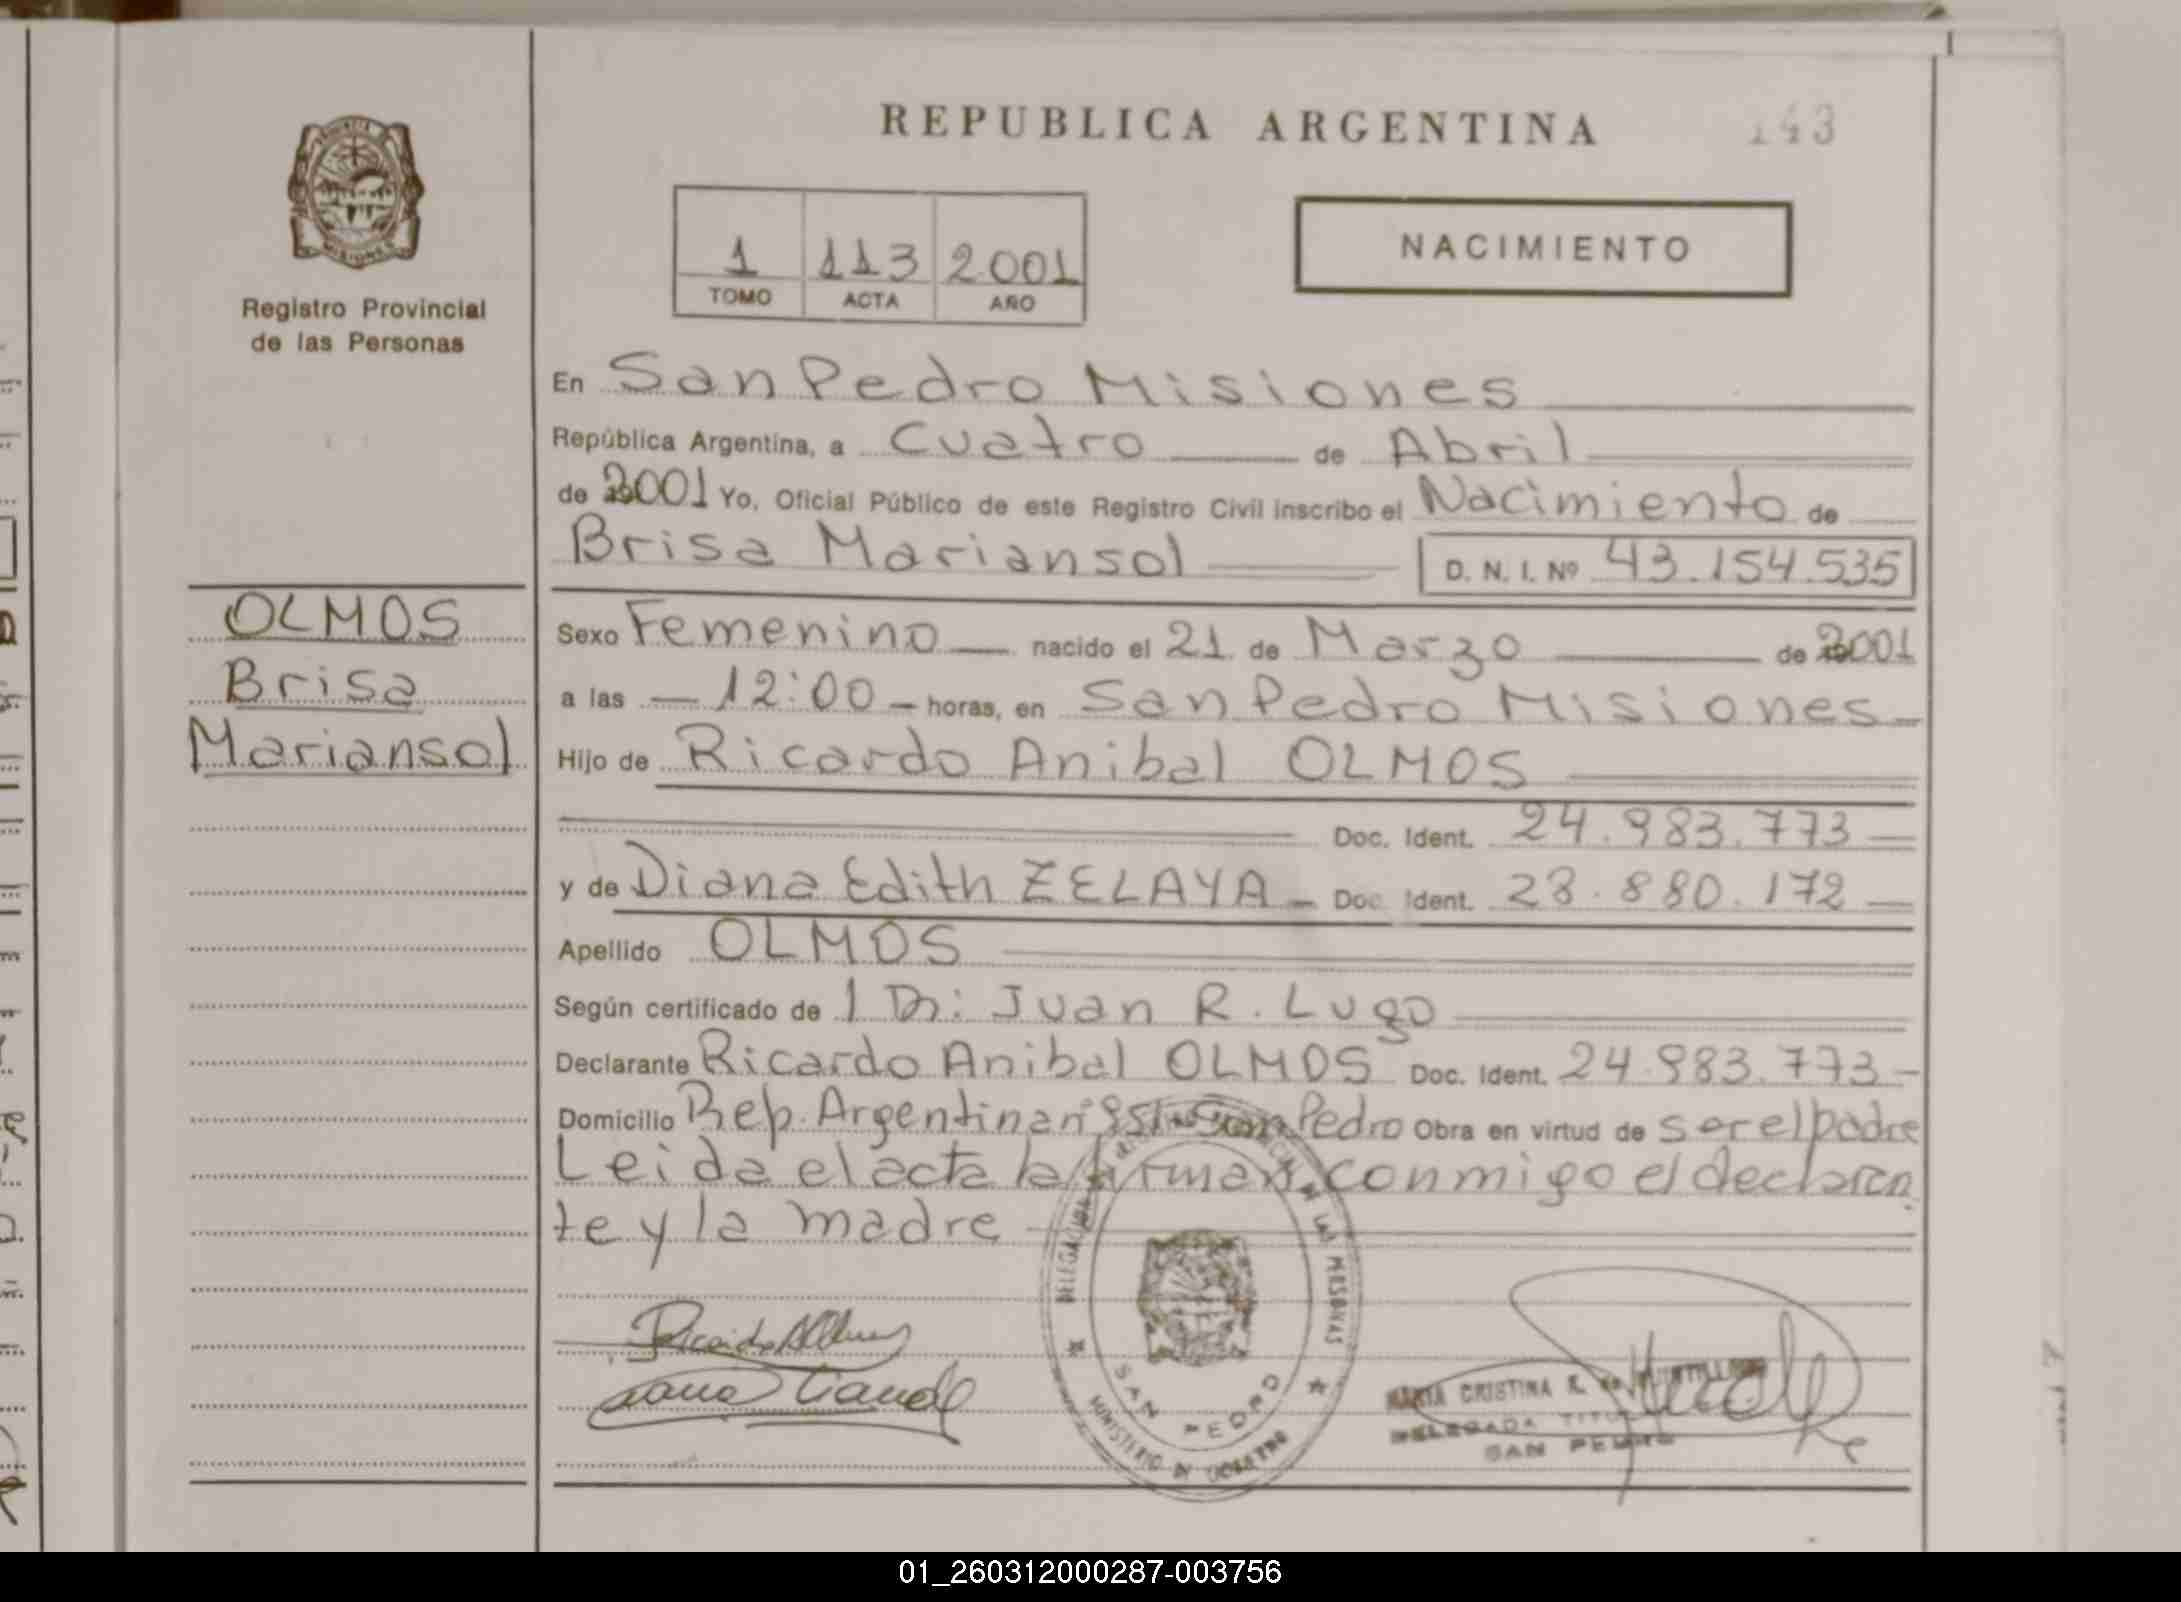 REPUBLICA ARGENTINA
143
Registro Provincial
de las Personas
1 113 2001
TOMO ACTA AÑO
NACIMIENTO
En San Pedro Misiones
República Argentina, a Cuatro de Abril
de 2001 Yo, Oficial Público de este Registro Civil inscribo el Nacimiento de
Brisa Mariansol D. N. I. Nº 43.154.535
OLMOS
Brisa
Mariansol
Sexo Femenino nacido el 21 de Marzo de 2001
a las 12:00 horas, en San Pedro Misiones
Hijo de Ricardo Anibal OLMOS
Doc. Ident. 24.983.773
y de Diana Edith ZELAYA Doc. Ident. 28.880.172
Apellido OLMOS
Según certificado de 1 Dr: Juan R. Lugo
Declarante Ricardo Anibal OLMOS Doc. Ident. 24.983.773
Domicilio Rep. Argentina nº 951 San Pedro Obra en virtud de ser el padre
Leida el acta la firman conmigo el declaran
te y la madre
SAN PEDRO
MINISTERIO DE GOBIERNO
MARIA CRISTINA R. de
DELEGADA TITULAR
SAN PEDRO
01_260312000287-003756